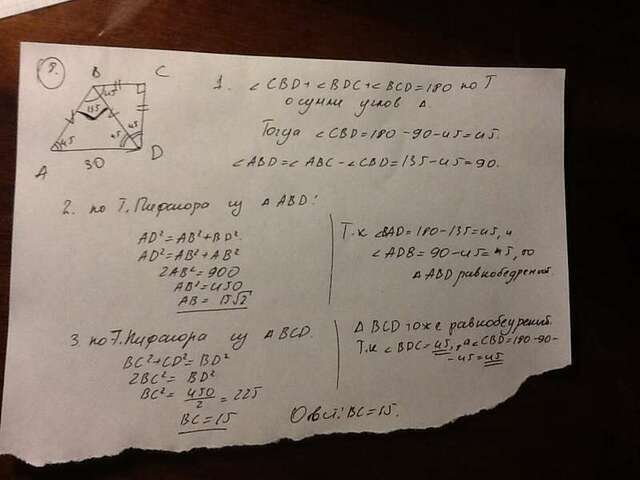 8.
B
C
45
135
45
45
45
A
30
D
1. ∠CBD+∠BDC+∠BCD=180 по Т
о сумм углов Δ.
Тогда ∠CBD=180-90-45=45.
∠ABD=∠ABC-∠CBD=135-45=90.
2. по Т.Пифагора из ΔABD:
AD²=AB²+BD².
AD²=AB²+AB²
2AB²=900
AB²=450
AB=15√2
Т.к ∠BAD=180-135=45, и
∠ADB=90-45=45, то
ΔABD равнобедрений.
3. по Т.Пифагора из ΔBCD.
BC²+CD²=BD²
2BC²=BD²
BC²=450/2=225
BC=15
ΔBCD тоже равнобедрений.
Т.к ∠BDC=45, а ∠CBD=180-90-
-45=45
Ответ: BC=15.